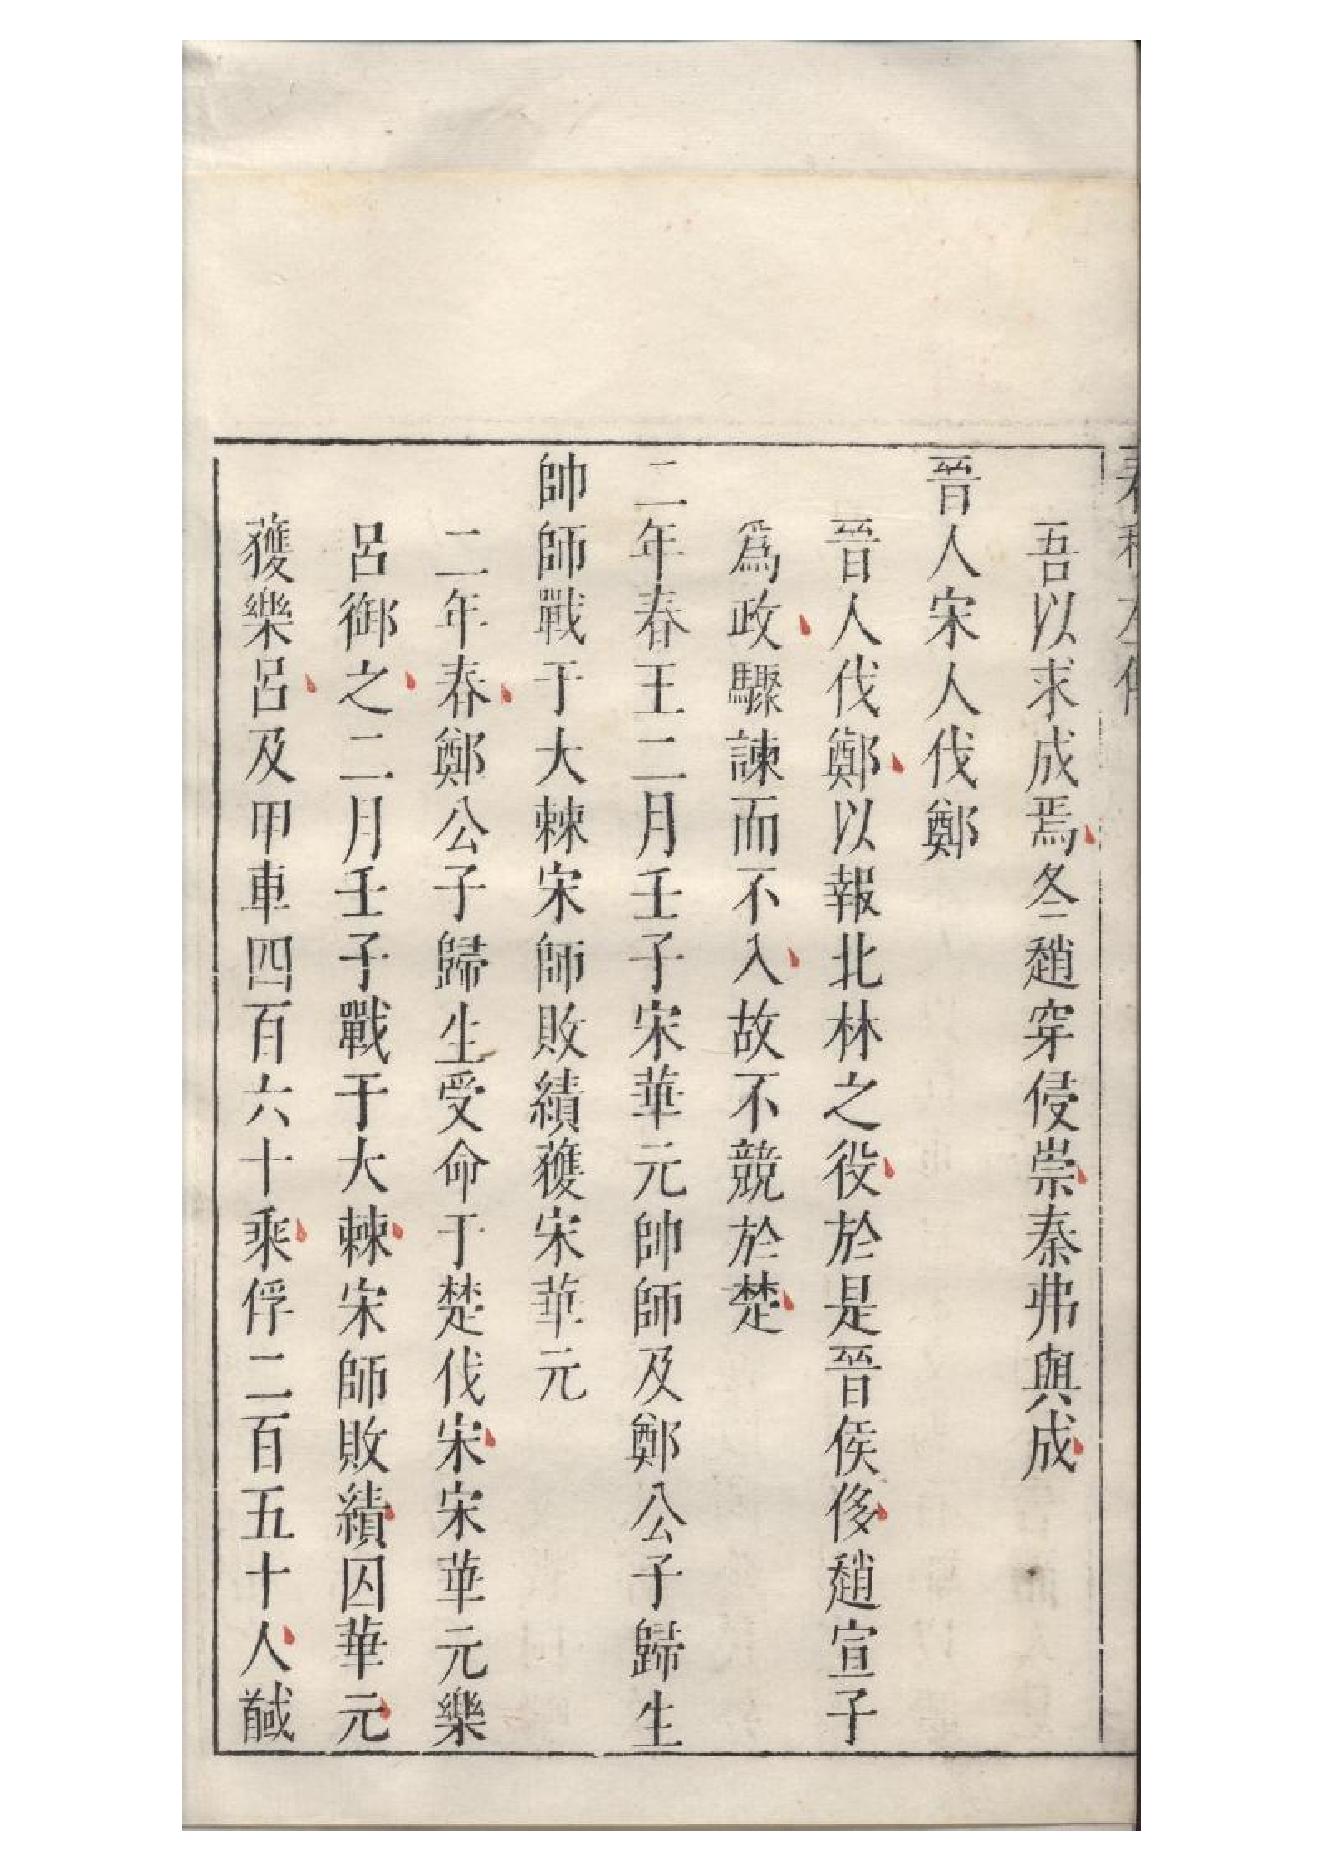 春秋左傳
吾以求成焉冬趙穿侵崇秦弗與成
晉人宋人伐鄭
晉人伐鄭以報北林之役於是晉侯侈趙宣子
爲政驟諫而不入故不競於楚
二年春王二月壬子宋華元帥師及鄭公子歸生
帥師戰于大棘宋師敗績獲宋華元
二年春鄭公子歸生受命于楚伐宋宋華元樂
呂御之二月壬子戰于大棘宋師敗績囚華元
獲樂呂及甲車四百六十乘俘二百五十人馘